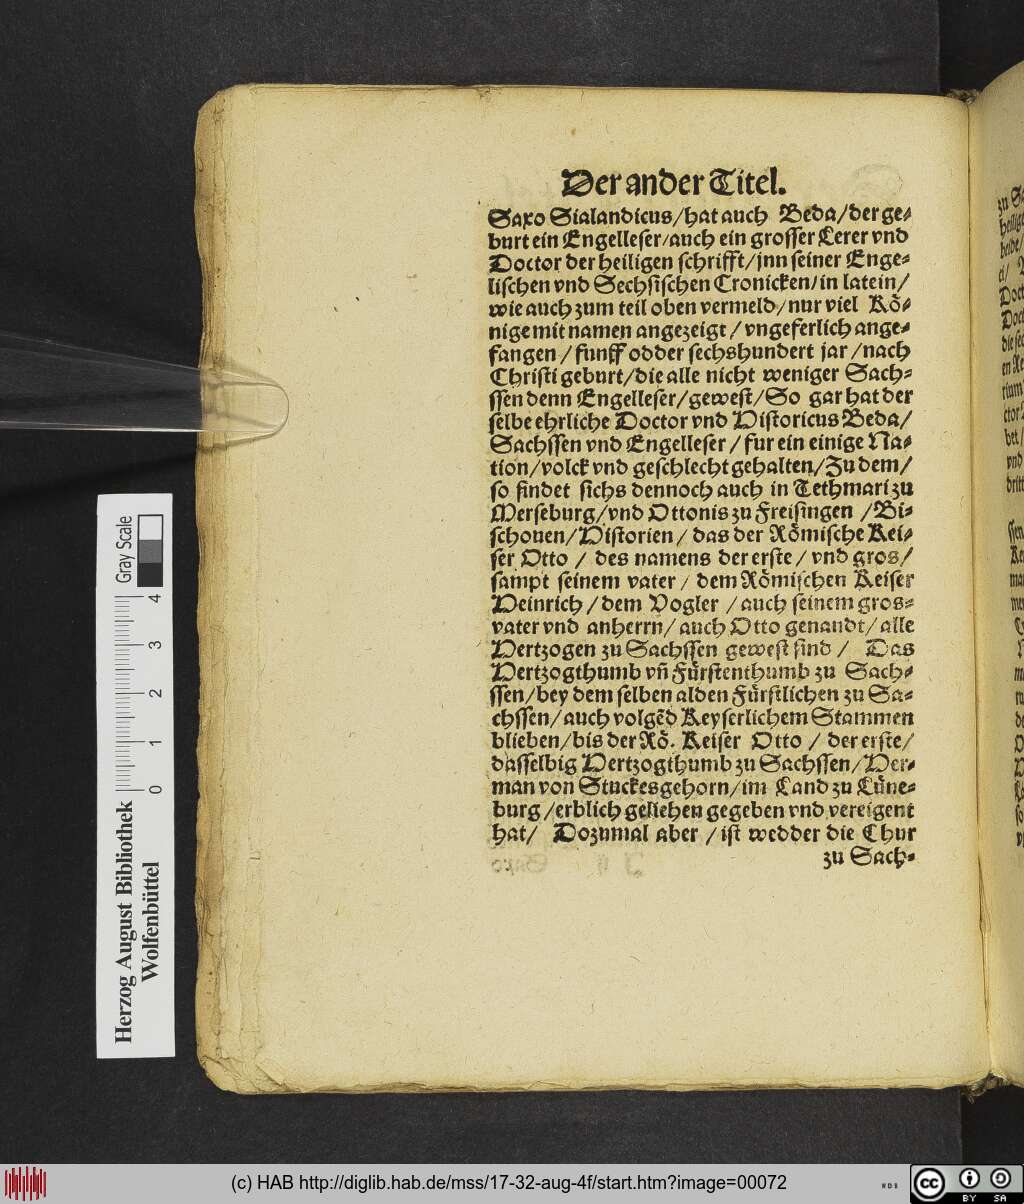 Der ander Titel.
Saxo Sialandicus/hat auch Beda/der ge-
burt ein Engelleser/auch ein grosser Lerer vnd
Doctor der heiligen schrifft/jnn seiner Enge-
lischen vnd Sechsischen Cronicken/in latein/
wie auch zum teil oben vermeld/nur viel Kö-
nige mit namen angezeigt/vngeferlich ange-
fangen/funff odder sechshundert jar/nach
Christi geburt/die alle nicht weniger Sach-
ssen denn Engelleser/gewest/So gar hat der
selbe ehrliche Doctor vnd Historicus Beda/
Sachssen vnd Engelleser/fur ein einige Na-
tion/volck vnd geschlecht gehalten/Zu dem/
so findet sichs dennoch auch in Tethmari zu
Merseburg/vnd Ottonis zu Freisingen/Bi-
schouen/Historien/das der Römische Kei-
ser Otto/des namens der erste/vnd gros/
sampt seinem vater/dem Römischen Keiser
Heinrich/dem Vogler/auch seinem gros-
vater vnd anherrn/auch Otto genandt/alle
Hertzogen zu Sachssen gewest sind/ Das
Hertzogthumb vñ Fürstenthumb zu Sach-
ssen/bey dem selben alden Fürstlichen zu Sa-
chssen/auch volgẽd Keyserlichem Stammen
blieben/bis der Rö. Keiser Otto/der erste/
dasselbig Hertzogthumb zu Sachssen/Her-
man von Stuckesgehorn/im Land zu Lüne-
burg/erblich geliehen gegeben vnd vereigent
hat/ Dozumal aber/ist wedder die Chur
zu Sach-
Herzog August Bibliothek
Wolfenbüttel
Gray Scale
0 1 2 3 4
(c) HAB http://diglib.hab.de/mss/17-32-aug-4f/start.htm?image=00072
WDB
cc BY SA